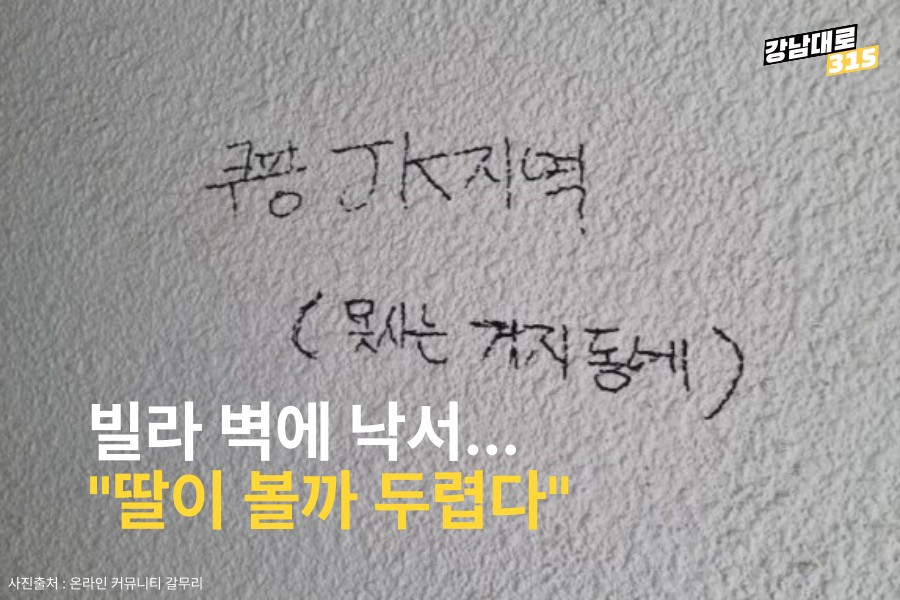 강남대로
315
쿠팡 JK지역
(못사는 거지 동네)
빌라 벽에 낙서...
"딸이 볼까 두렵다"
사진출처 : 온라인 커뮤니티 갈무리